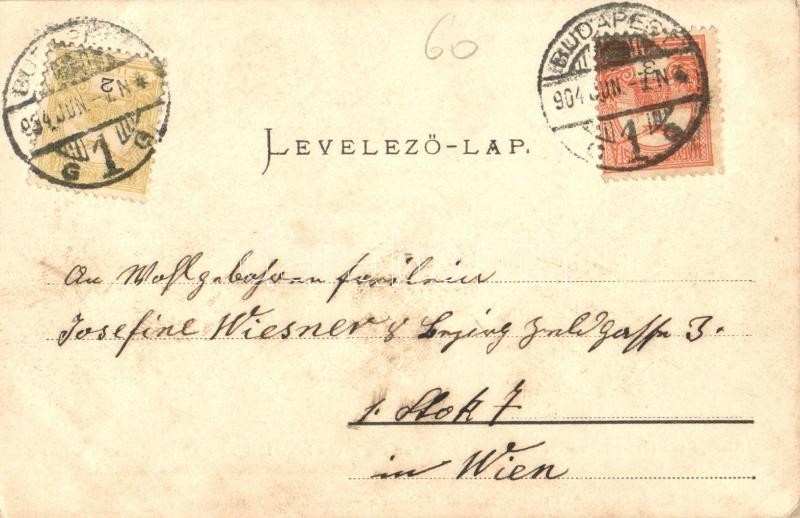 60
BUDAPEST
904 JUN -1 N
1
G G
2
BUDAPEST
904 JUN -1 N
1
G G
3
LEVELEZŐ-LAP.
An Wohlgebohren freilein
Josefine Wiesner 8 Bezirg Gasse 3.
1. Stok 7
in Wien